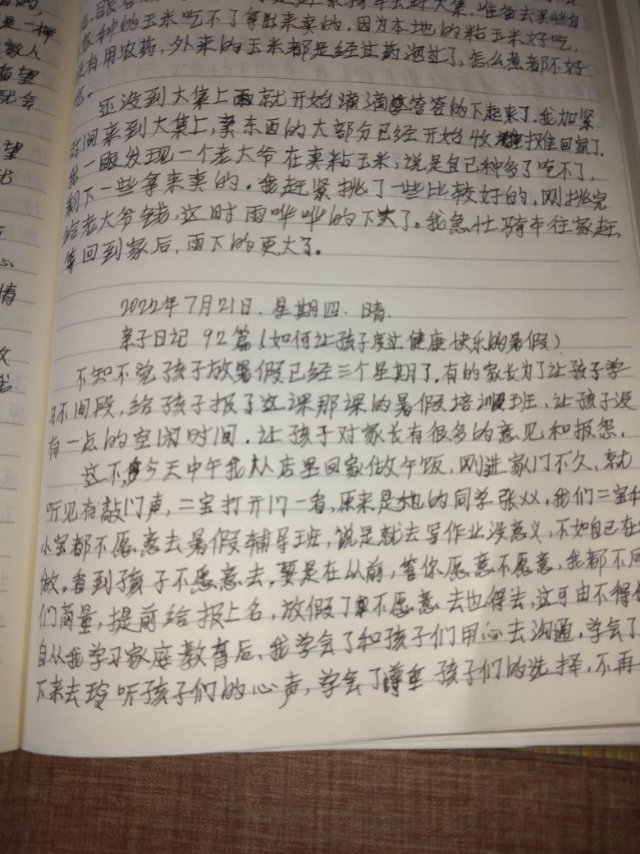 是一样
家人
希望
望
情
我
种的玉米吃不了拿出来卖的,因为本地的粘玉米好吃.
没有用农药,外来的玉米都是经过药泡过了,怎么煮都不好
吃.
还没到大集上雨就开始滴滴答答的下起来了.我加紧
时间来到大集上,卖东西的大部分已经开始收摊回家了.
我一眼发现一个老大爷在卖粘玉米,说是自己种多了吃不了,
剩下一些拿来卖的.我赶紧挑了一些比较好的,刚挑完
给老大爷钱,这时雨哗哗的下大了.我急忙骑车往家赶.
等回到家后,雨下的更大了.
2022年7月21日.星期四.晴.
亲子日记 92篇(如何让孩子度过健康快乐的暑假)
不知不觉孩子放暑假已经三个星期了.有的家长为了让孩子学
习不间段,给孩子报了这课那课的暑假培训班,让孩子没
有一点的空闲时间.让孩子对家长有很多的意见和报怨.
这不今天中午我从店里回家做午饭,刚进家门不久,就
听见有敲门声,二宝打开门一看,原来是他的同学张双,我们三宝和
小宝都不愿意去暑假辅导班,说是就去写作业没意义,不如自己在
做.看到孩子不愿意去,要是在从前,管你愿意不愿意,我都不同
们商量,提前给报上名,放假了不愿意去也得去,这可由不得
自从我学习家庭教育后,我学会了和孩子们用心去沟通,学会了
下来去玲听孩子们的心声,学会了尊重孩子们的选择,不再